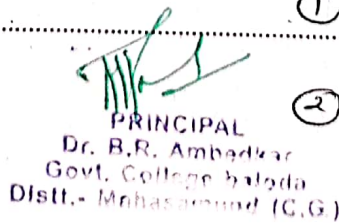 1
2
PRINCIPAL
Dr. B.R. Ambedkar
Govt. College baloda
Distt.- Mahasamund (C.G.)